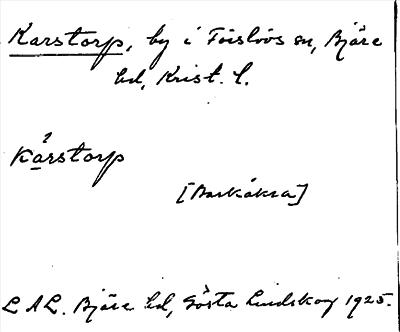 Karstorp, by i Förslövs sn, Bjäre
hd, Krist. l.
2
Karstorp
[Barkåkra]
LAL. Bjäre hd, Gösta Lindskog 1925.